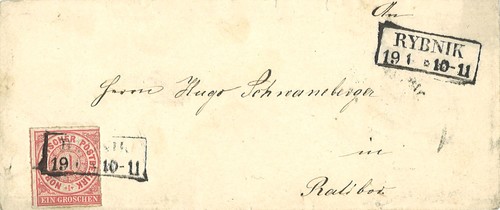 An
RYBNIK
19 1 8 10-11
Herrn Hugo Schwamberger
in
Ratibor
NORDDEUTSCHER POSTBEZIRK
19 10-11
EIN GROSCHEN